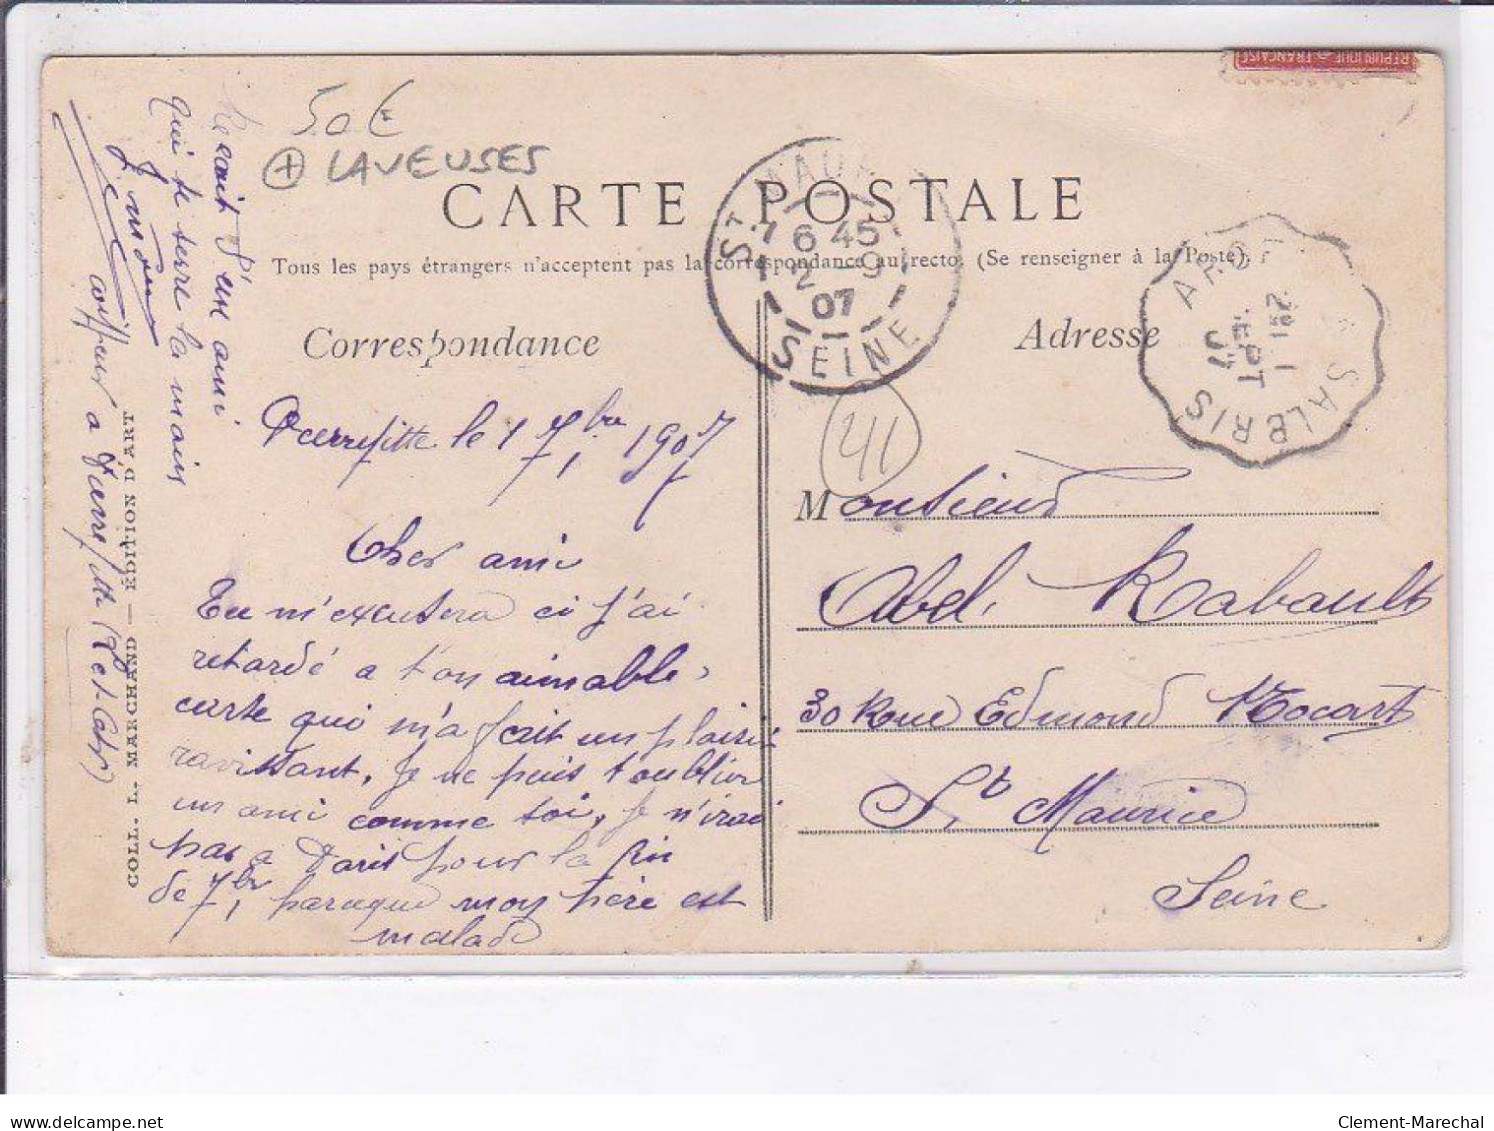 RÉPUBLIQUE FRANÇAISE
50€
+ LAVEUSES
CARTE POSTALE
Tous les pays étrangers n'acceptent pas la correspondance au recto. (Se renseigner à la Poste).
Correspondance
Adresse
ST MAUR
6 45
2 - 9
07
SEINE
SALBRIS
1
SEPT
07
41
Pierrefitte le 1 7bre 1907
Cher ami
Tu m'excusera si j'ai
retardé a ton aimable
carte qui m'a fait un plaisir
ravissant, Je ne puis t'oublier
un ami comme toi, Je n'irai
pas a Paris pour la fin
de 7br, parceque mon père est
malade
Recoit d'un ami
qui te serre la main
coiffeur a Pierrefitte (Let Cher)
COLL. L. MARCHAND — ÉDITION D'ART
Monsieur
Abel Rabault
30 Rue Edmond Nocart
St Maurice
Seine
delcampe.net
Clement-Marechal